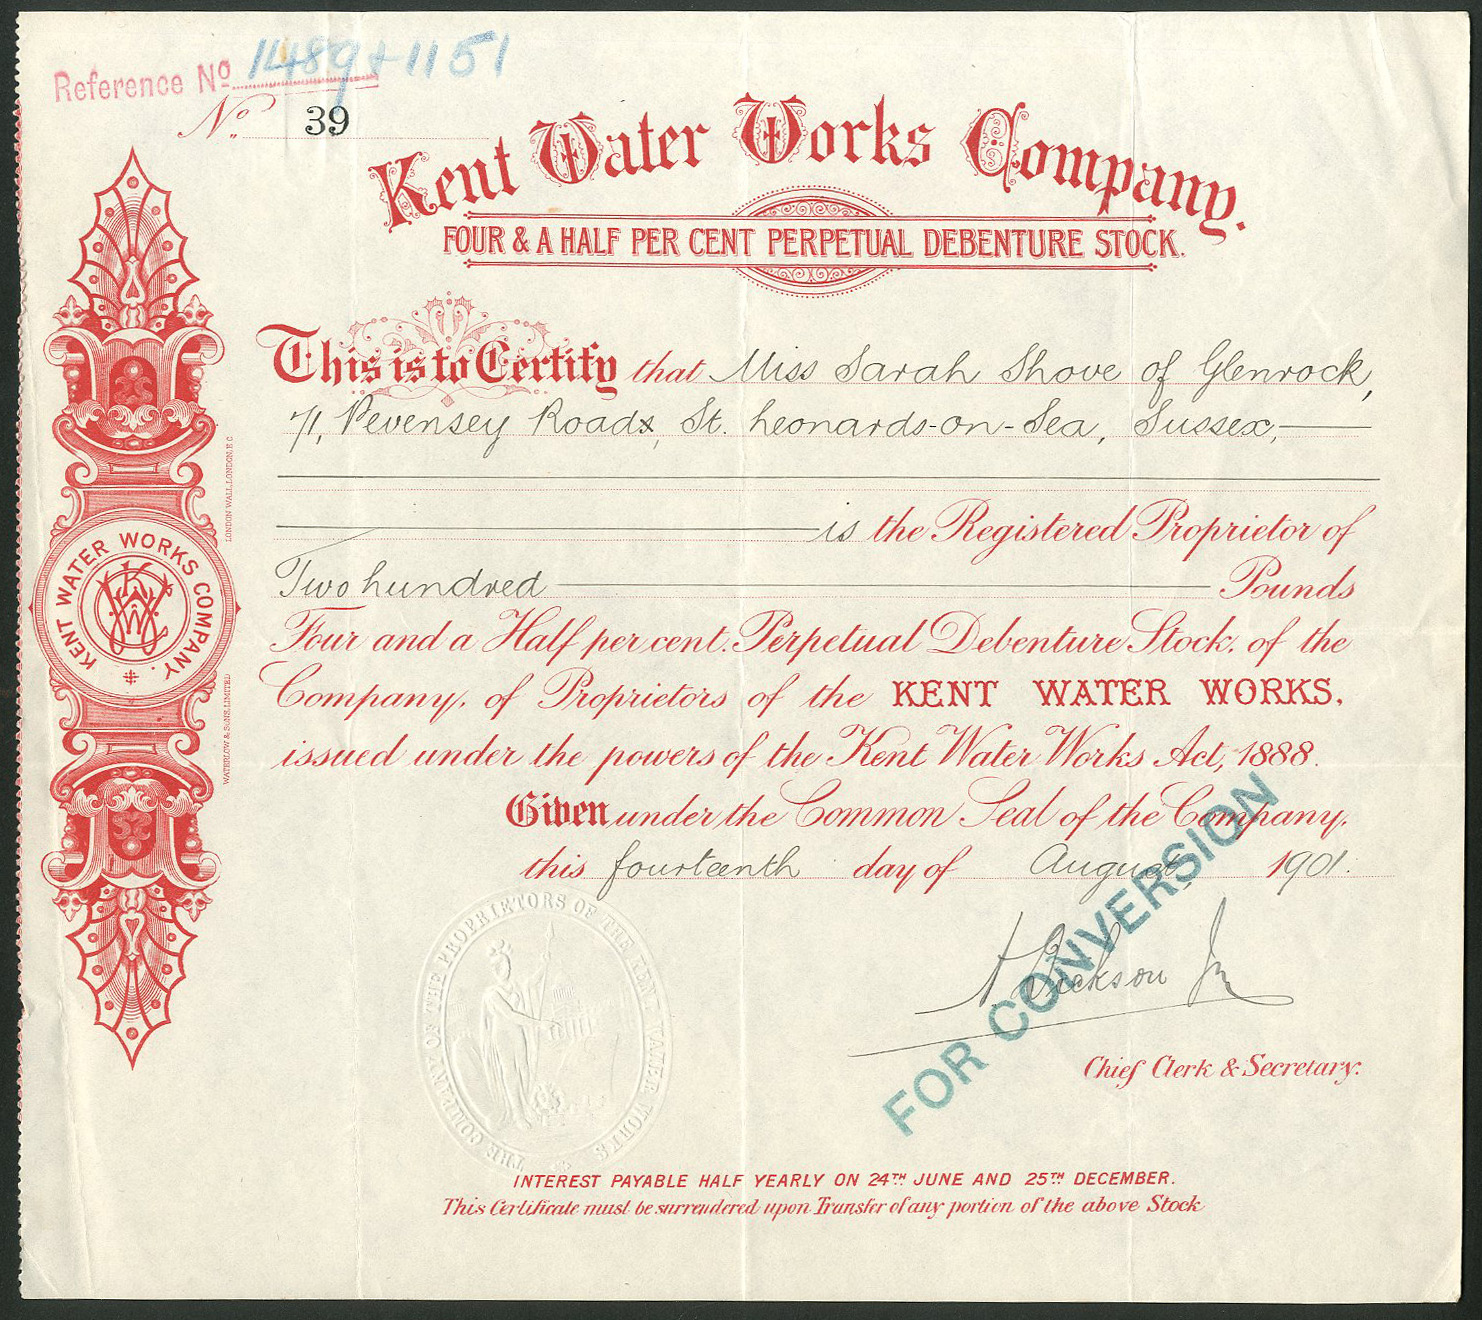 Reference No 1489+1151
No. 39
Kent Water Works Company.
FOUR & A HALF PER CENT PERPETUAL DEBENTURE STOCK.
This is to Certify that Miss Sarah Shove of Glenrock,
71, Pevensey Road, St. Leonards-on-Sea, Sussex,
is the Registered Proprietor of
Two hundred Pounds
Four and a Half per cent. Perpetual Debenture Stock. of the
Company, of Proprietors of the KENT WATER WORKS,
issued under the powers of the Kent Water Works Act, 1888.
Given under the Common Seal of the Company,
this fourteenth day of August 1901.
Jackson Jn
Chief Clerk & Secretary.
FOR CONVERSION
INTEREST PAYABLE HALF YEARLY ON 24TH JUNE AND 25TH DECEMBER.
This Certificate must be surrendered upon Transfer of any portion of the above Stock
KENT WATER WORKS COMPANY.
WATERLOW & SONS LIMITED
LONDON WALL, LONDON, E.C.
THE COMPANY OF THE PROPRIETORS OF THE KENT WATER WORKS